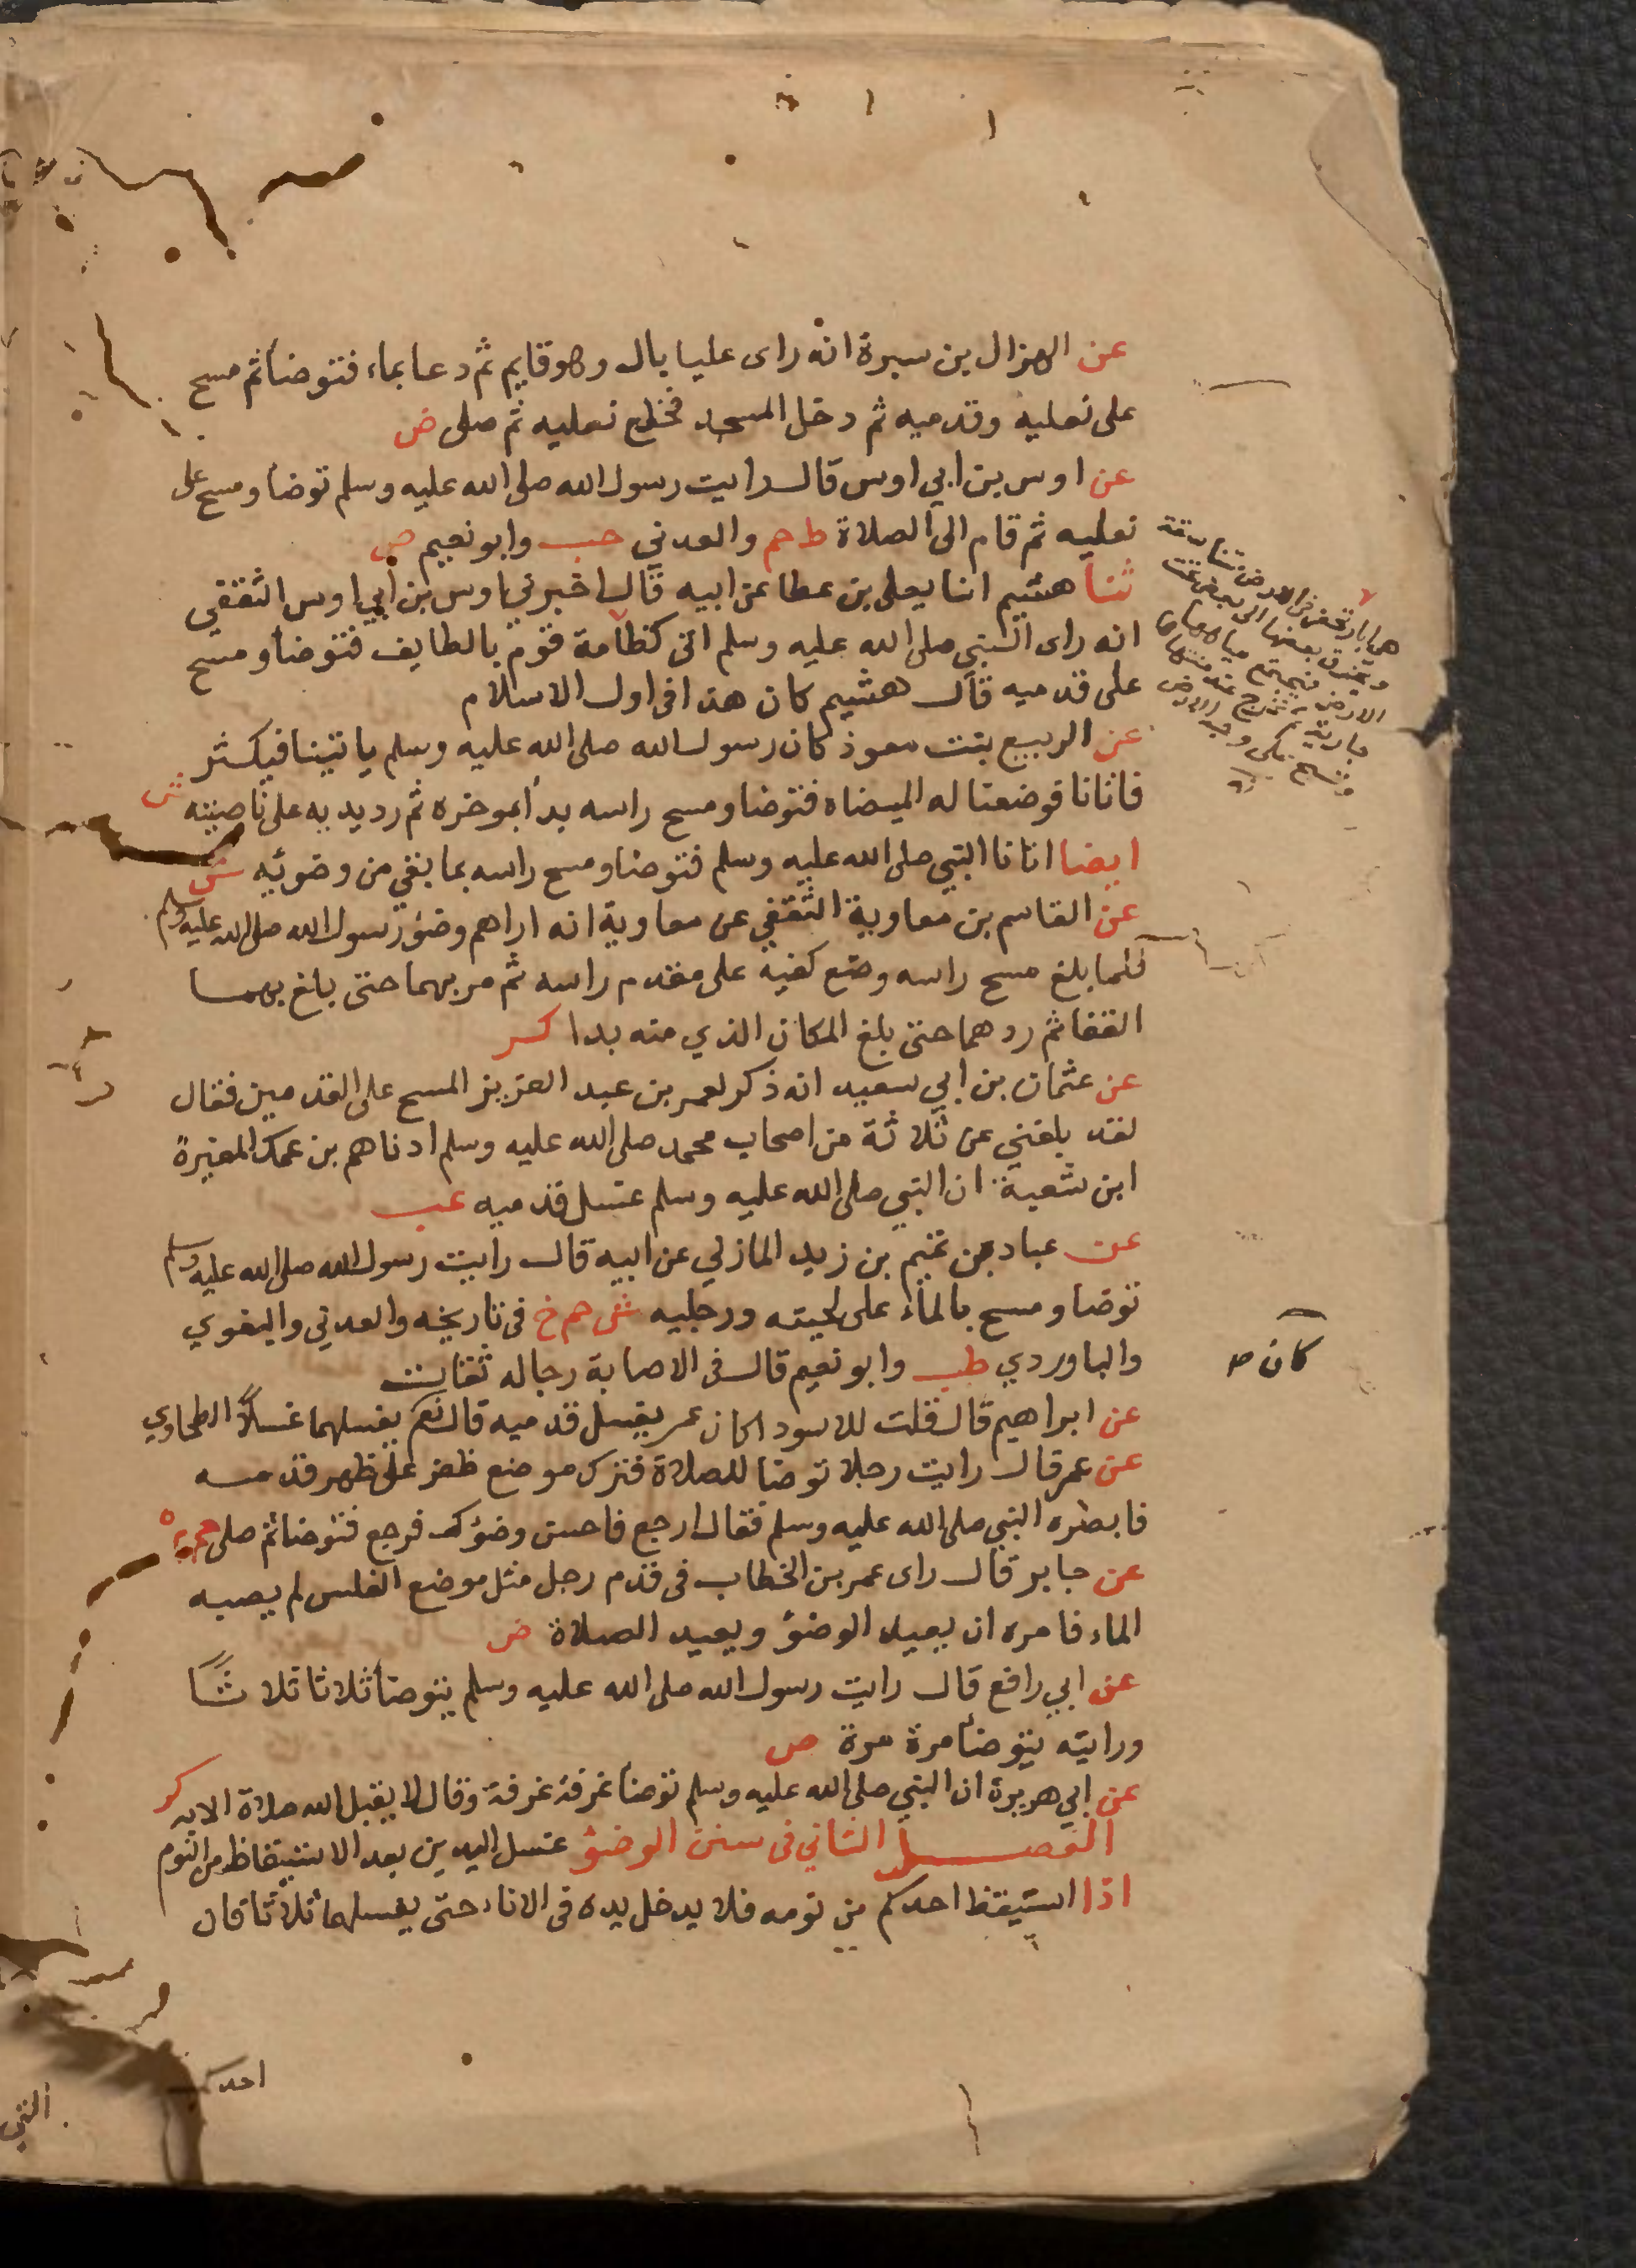 عن الهزال بن سبرة انه راى عليا بال وهو قايم ثم دعا بماء فتوضأ ثم مسح
على نعليه وقدميه ثم دخل المسجد فخلع نعليه ثم صلى ض
عن اوس بن ابي اوس قال رايت رسول الله صلى الله عليه وسلم توضأ ومسح على
نعليه ثم قام الى الصلاة ط حم والعدني حب وابو نعيم ص
ثنا هشيم انا يعلى بن عطا عن ابيه قال اخبرني اوس بن أبي اوس الثقفي
انه راى النبي صلى الله عليه وسلم اتى كظامة قوم بالطايف فتوضأ ومسح
على قدميه قال هشيم كان هذا في اول الاسلام
عن الربيع بنت معوذ كان رسول الله صلى الله عليه وسلم ياتينا فيكثر
فاتانا فوضعنا له الميضاه فتوضا ومسح راسه بدأ بموخره ثم رد يديه على ناصيته ش
ايضا اتانا النبي صلى الله عليه وسلم فتوضا ومسح راسه بما بقي من وضوئه ش
عن القاسم بن معاوية الثقفي عن معاوية انه اراهم وضؤ رسول الله صلى الله عليه وسلم
فلما بلغ مسح راسه وضع كفيه على مقدم راسه ثم مر بهما حتى بلغ بهما
القفا ثم ردهما حتى بلغ المكان الذي منه بدا كر
عن عثمان بن ابي سعيد انه ذكر لعمر بن عبد العزيز المسح على القدمين فقال
لقد بلغني عن ثلاثة من اصحاب محمد صلى الله عليه وسلم ادناهم بن عمك المغيرة
ابن شعبة ان النبي صلى الله عليه وسلم غسل قدميه عب
عن عباد بن تميم بن زيد المازني عن ابيه قال رايت رسول الله صلى الله عليه وسلم
توضا ومسح بالماء على لحيته ورجليه ش حم خ فى تاريخه والعدني والبغوي
والباوردي طب وابو نعيم قال فى الاصابة رجاله ثقات
عن ابراهيم قال قلت للاسود اكان عمر يغسل قدميه قال نعم يغسلهما غسلًا الطحاوي
عن عمر قال رايت رجلا توضا للصلاة فترك موضع ظفر على ظهر قدمه
فابصره النبي صلى الله عليه وسلم فقال ارجع فاحسن وضؤك فرجع فتوضا ثم صلى حم ه
عن جابر قال راى عمر بن الخطاب فى قدم رجل مثل موضع الفلس لم يصبه
الماء فامره ان يعيد الوضؤ ويعيد الصلاة ض
عن ابي رافع قال رايت رسول الله صلى الله عليه وسلم يتوضأ ثلاثا ثلاثًا
ورايته يتوضأ مرة مرة ص
عن ابي هريرة ان النبي صلى الله عليه وسلم توضأ غرفة غرفة وقال لا يقبل الله صلاة الا به كر
الفصل الثاني فى سنن الوضؤ غسل اليدين بعد الاستيقاظ من النوم
اذا استيقظ احدكم من نومه فلا يدخل يده فى الاناء حتى يغسلها ثلاثا فان
احدكم
هى ابار تحفر في الارض متناسقة
ويخرق بعضها الى بعض تحت
الارض فيجتمع مياهها
جارية ثم تخرج عند منتهاها
فتسيح على وجه الارض
كان ص
النبي